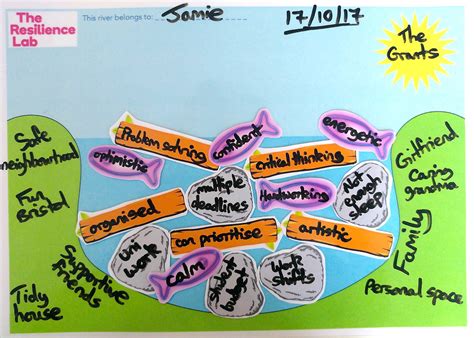 The
Resilience
Lab
This river belongs to: Jamie
17/10/17
The
Grants
Safe
neighbourhood
Fun
Bristol
Supportive
Friends
Tidy
house
Problem solving
confident
energetic
optimistic
critical thinking
multiple
deadlines
Hardworking
Not
enough
sleep
organised
can prioritise
artistic
Uni
work
calm
student
budget
Work
shifts
Girlfriend
Caring
grandma
Family
Personal space